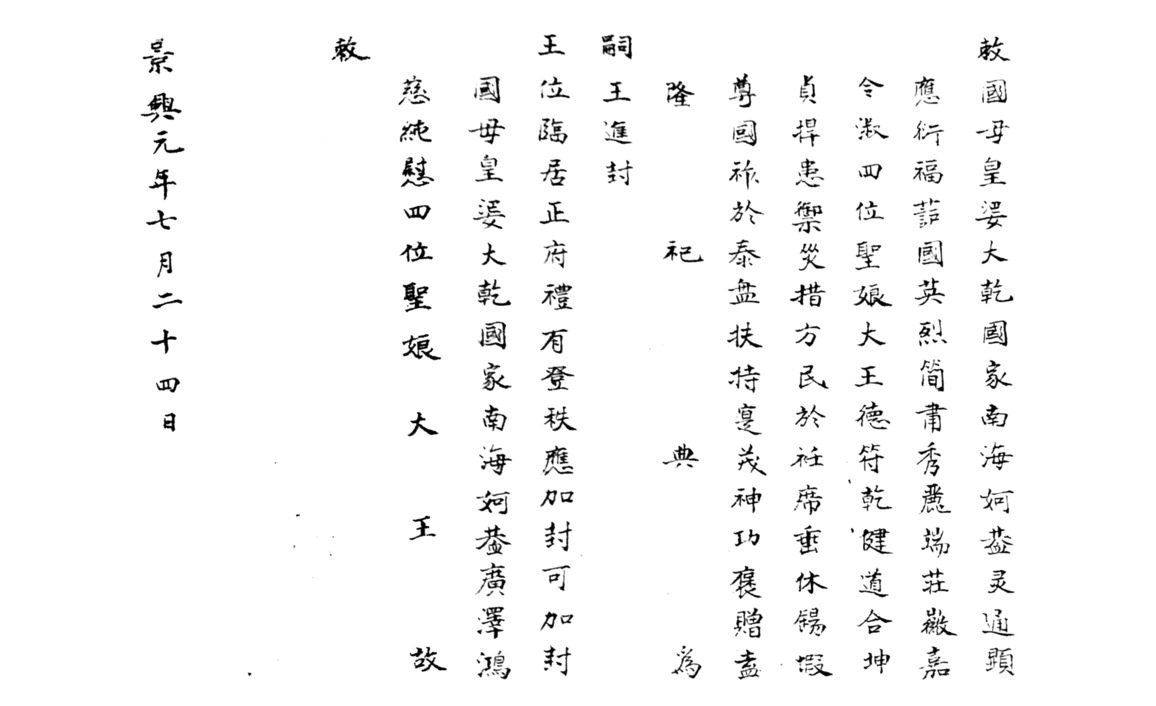 敕國母皇婆大乾國家南海妸灵通顯
應衍福國英烈简肅秀麗端莊徽嘉
令淑四位聖娘大王德符乾健道合坤
貞捍患禦災措方民於衽席垂休錫嘏
尊國祚於泰盘扶持寔茂神功褒贈盍
隆祀典為
嗣王進封
王位臨居正府禮有登秩應加封可加封
國母皇婆大乾國家南海妸廣澤鴻
慈純慰四位聖娘大王故
敕
景興元年七月二十四日